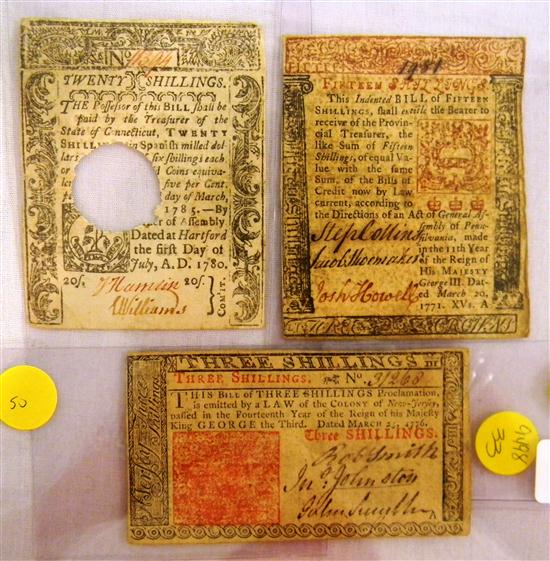 No
TWENTY SHILLINGS.
THE Possessor of this BILL shall be
paid by the Treasurer of the
State of Connecticut, TWENTY
SHILL in Spanish milled dol-
lars six shillings each
or Coins equiva-
le five per Cent,
day of March,
1785.—By
Order of Assembly
Dated at Hartford
the first Day of
July, A.D. 1780.
20s. 20s.
W Hamlin
Williams
COMTT.
1981
FIFTEEN SHILLINGS.
This Indented BILL of FIFTEEN
SHILLINGS, shall entitle the Bearer to
receive of the Provin-
cial Treasurer, the
like Sum of Fifteen
Shillings, of equal Va-
lue with the same
Sum, of the Bills of
Credit now by Law
current, according to
the Directions of an Act of General As-
sembly of Penn-
sylvania, made
in the 11th Year
of the Reign of
His MAJESTY
George III. Dat-
ed March 20,
1771. XVs. A
Step Collins
Jacob Shoemaker
Josh Howell
THREE SHILLINGS
III
THREE SHILLINGS. No. 31268
THIS BILL of THREE SHILLINGS Proclamation,
is emitted by a LAW of the COLONY of New-Jersey,
passed in the Fourteenth Year of the Reign of his Majesty
King GEORGE the Third. Dated MARCH 25, 1776.
Three SHILLINGS.
Rob Smith
Jno. Johnston
John Smyth
A
50
9498
33